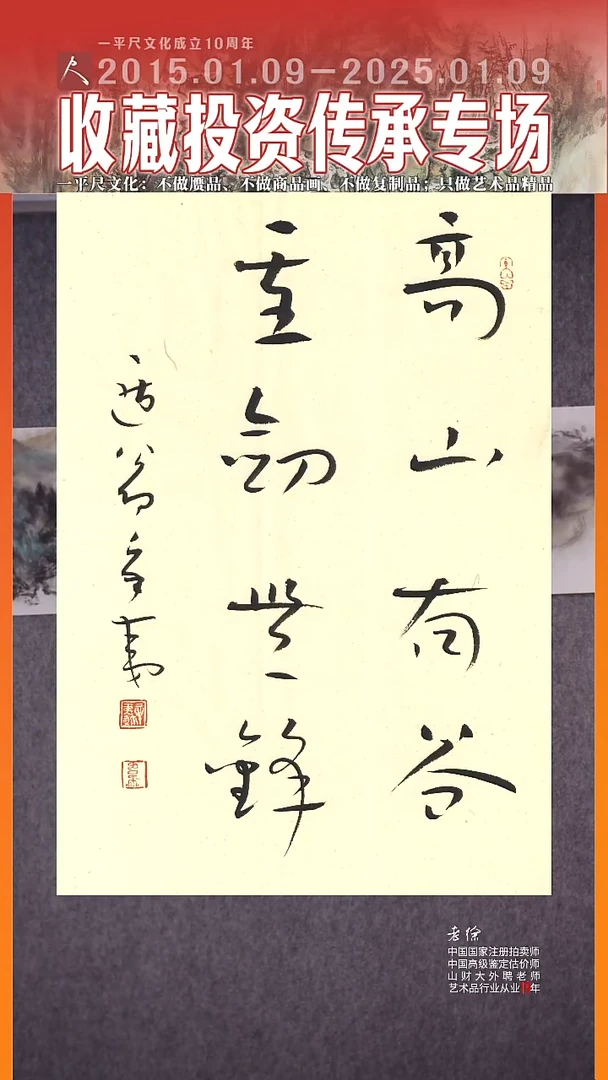 一平尺文化成立10周年
尺 2015.01.09－2025.01.09
收藏投资传承专场
一平尺文化：不做赝品、不做商品画、不做复制品；只做艺术品精品
高山有谷
重劒無鋒
老徐
中国国家注册拍卖师
中国高级鉴定估价师
山财大外聘老师
艺术品行业从业年